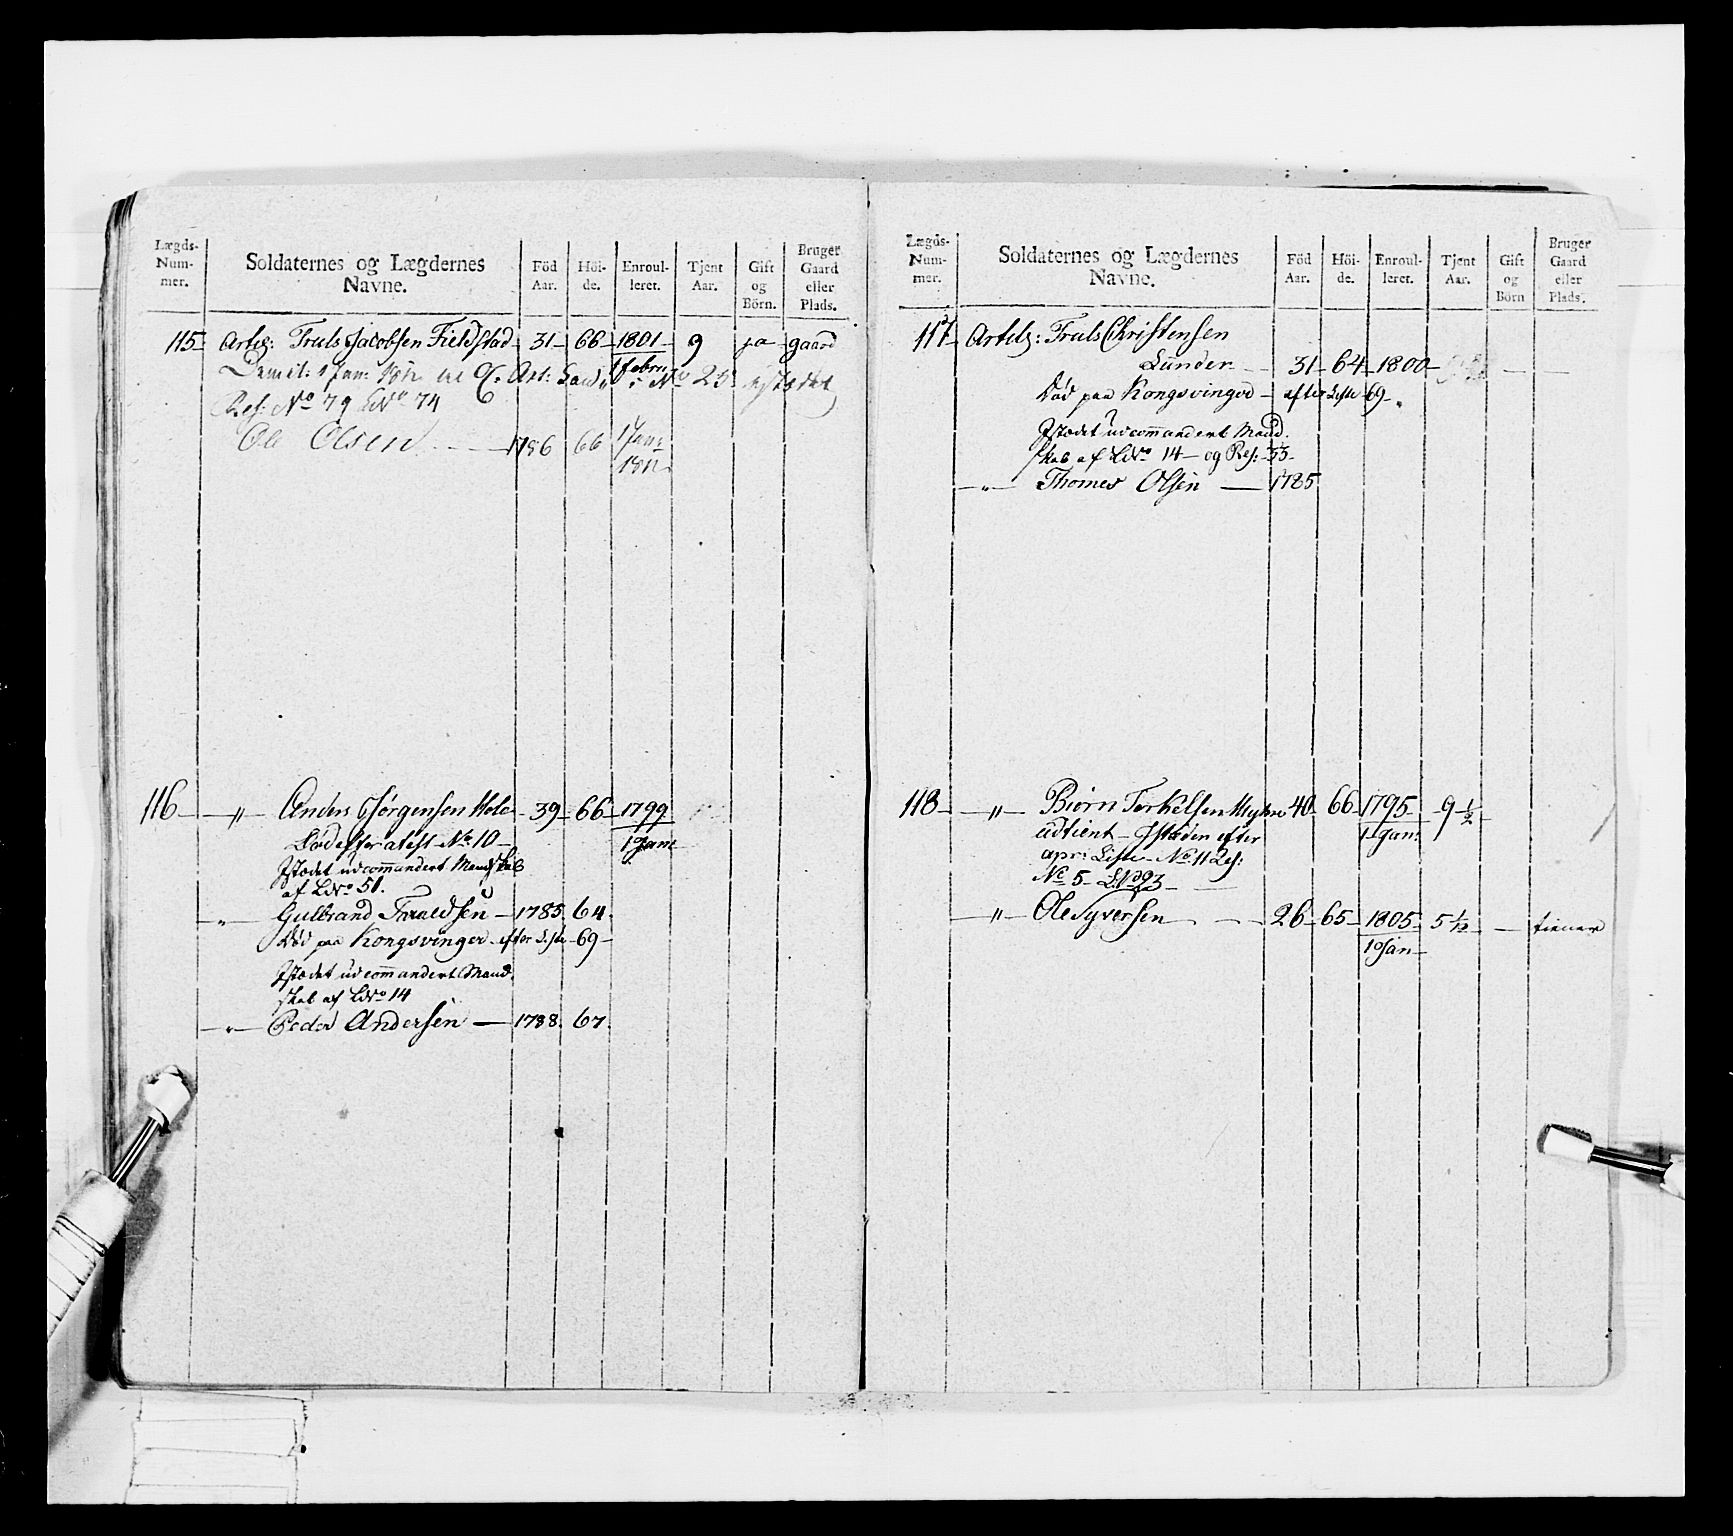 Lægds-Num-mer. Soldaternes og Lægdernes Navne. Föd Aar. Höi-de. Enroul-leret. Tjent Aar. Gift og Börn. Bruger Gaard eller Plads.
115 Artg: Truls Jacobsen Fieldstad 31 66 1801 9 ja gaard
1 febru:
Demit: 1 Jan: 1812 Art: No 25 istædet
Res: No 79 LNo 74
Ole Olsen 1786 66 1 Janu: 1812
116 " Anders Jørgensen Hole 39 66 1799
Død efter atest No 10 1 Jan:
Istædet udcommandert Mandskab
af LNo 51.
" Gulbrand Taraldsen 1785 64
Død paa Kongsvinger efter Liste 69
Istædet udcommandert Mand
skab af LNo 14
" Peder Andersen 1788. 67.
Lægds-Num-mer. Soldaternes og Lægdernes Navne. Föd Aar. Höi-de. Enroul-leret. Tjent Aar. Gift og Börn Bruger Gaard eller Plads.
117 Artels: Truls Christensen
Lunder 31 64 1800
Død paa Kongsvinger efter Liste 69
Istædet udcommandert Mand
skab af LNo 14 og Res: 33
" Thomes Olsen 1785
118 " Biørn Torkelsen 40 66 1795 9 1/2
udtient Istæden efter 1 Jan:
apr: Liste No 11 Res:
No 5 LNo 93
" Ole Syversen 26 65 1805 5 1/12 tiener
1 Jan